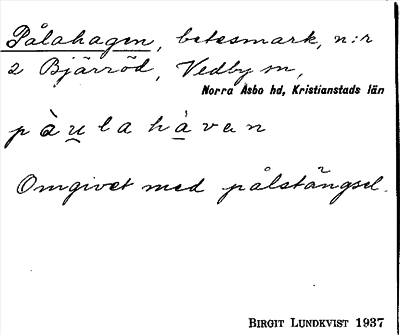 Pålahagen, betesmark, n:r
2 Bjärröd, Vedby sn,
Norra Åsbo hd, Kristianstads län
pàu̲la hà̲van
Omgivet med pålstängsel.
BIRGIT LUNDKVIST 1937